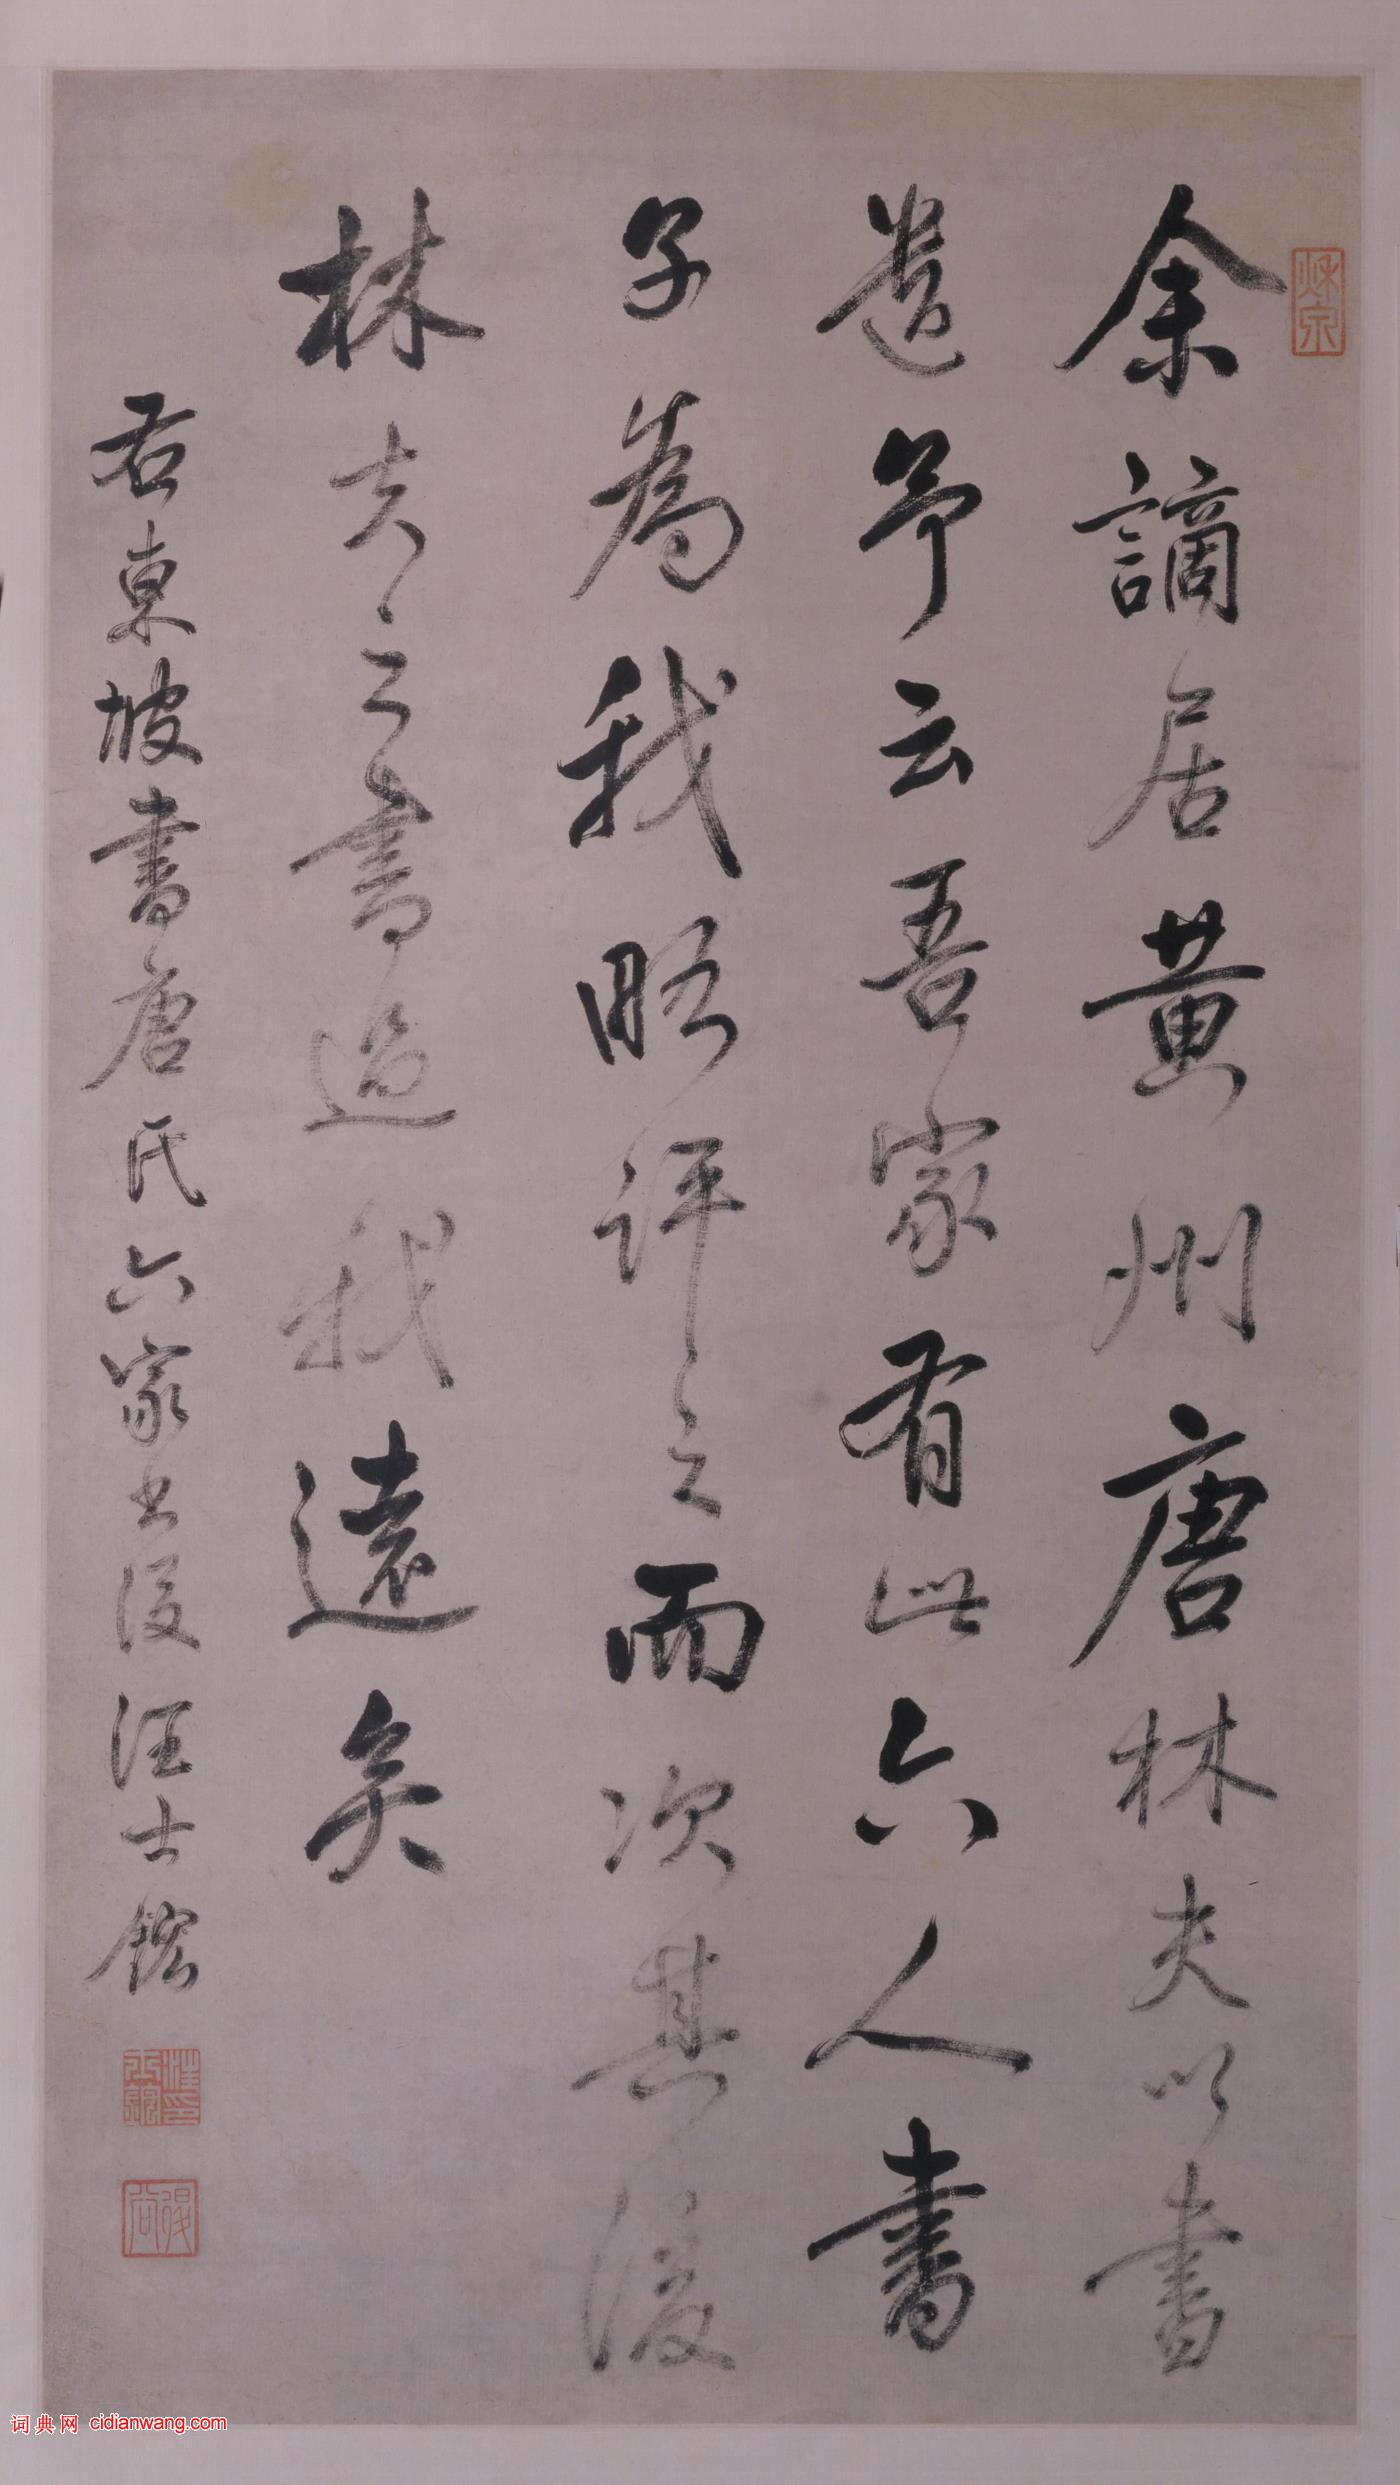 余謫居黄州唐林夫以書
遺予云吾家有此六人書
子為我略评之而次其後
林夫之書過我遠矣
右東坡書唐氏六家書後汪士鋐
汪士鋐印
退谷
词典网 cidianwang.com